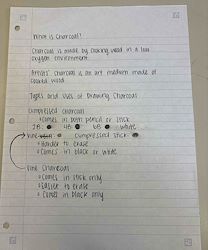 What is Charcoal?
Charcoal is made by cooking wood in a low
oxygen environment.
Artists' charcoal is an art medium made of
charred wood.
Types and Uses of Drawing Charcoal
Compressed Charcoal
Comes in both pencil or stick
2B 4B 6B White
Vine compressed stick
Harder to erase
Comes in black or white
Vine Charcoal
Comes in stick only
Easier to erase
Comes in black only